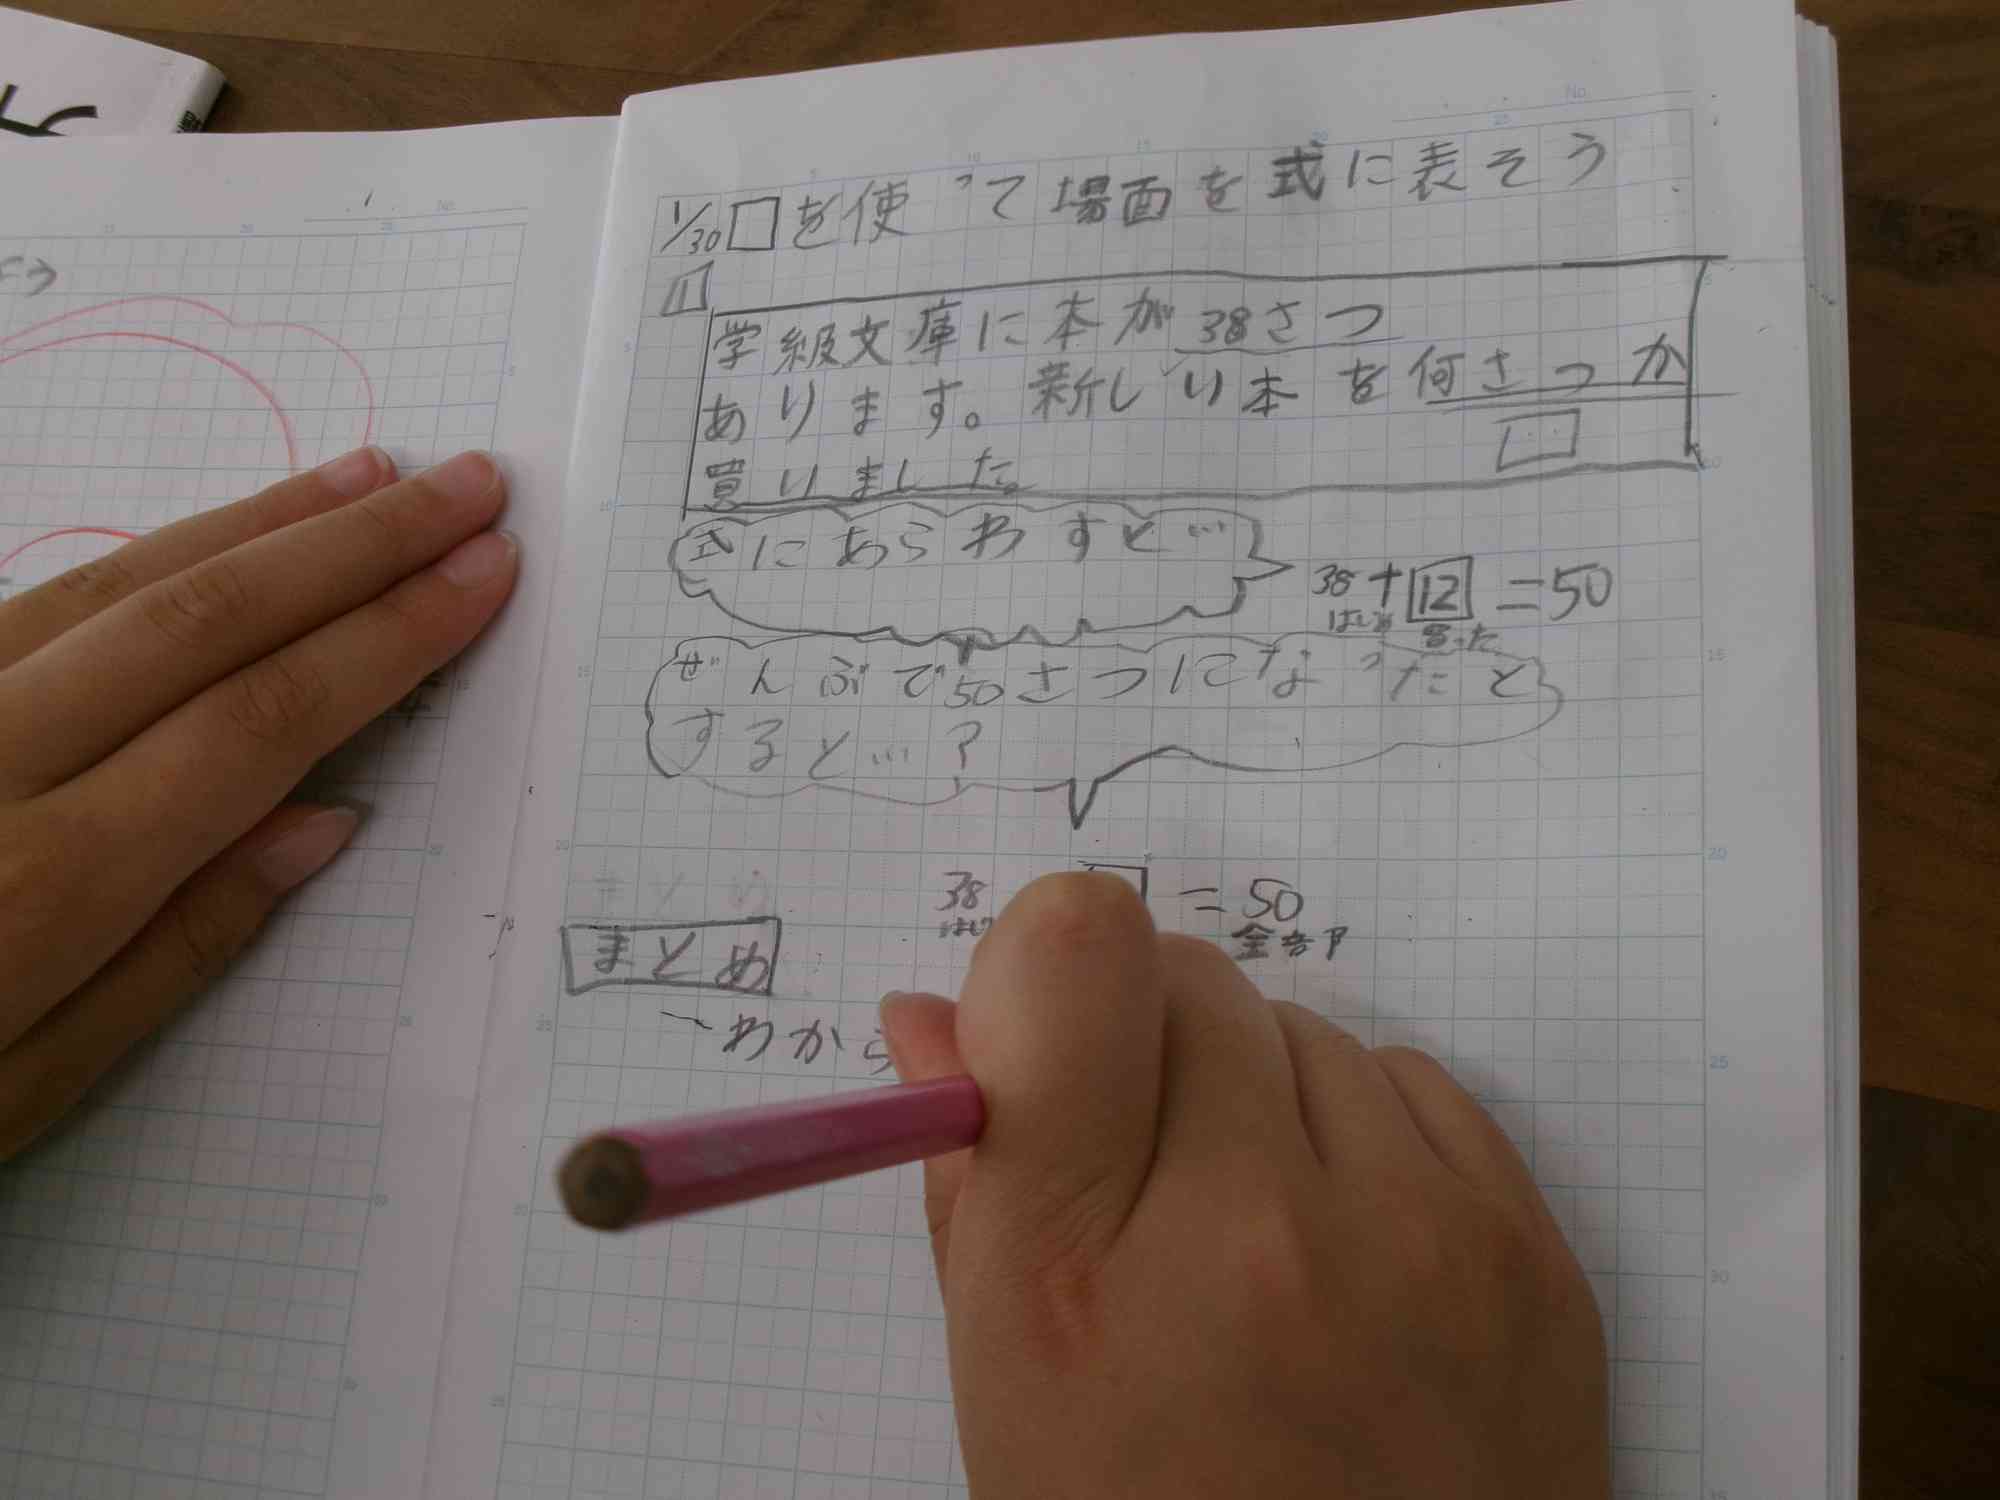 1/30 □を使って場面を式に表そう
1
学級文庫に本が38さつ
あります。新しい本を何さつか
□
買いました。
式にあらわすと…
38+12=50
はじめ 買った
ぜんぶで50さつになったと
すると…?
38 = 50
はじ 全部
まとめ
わから